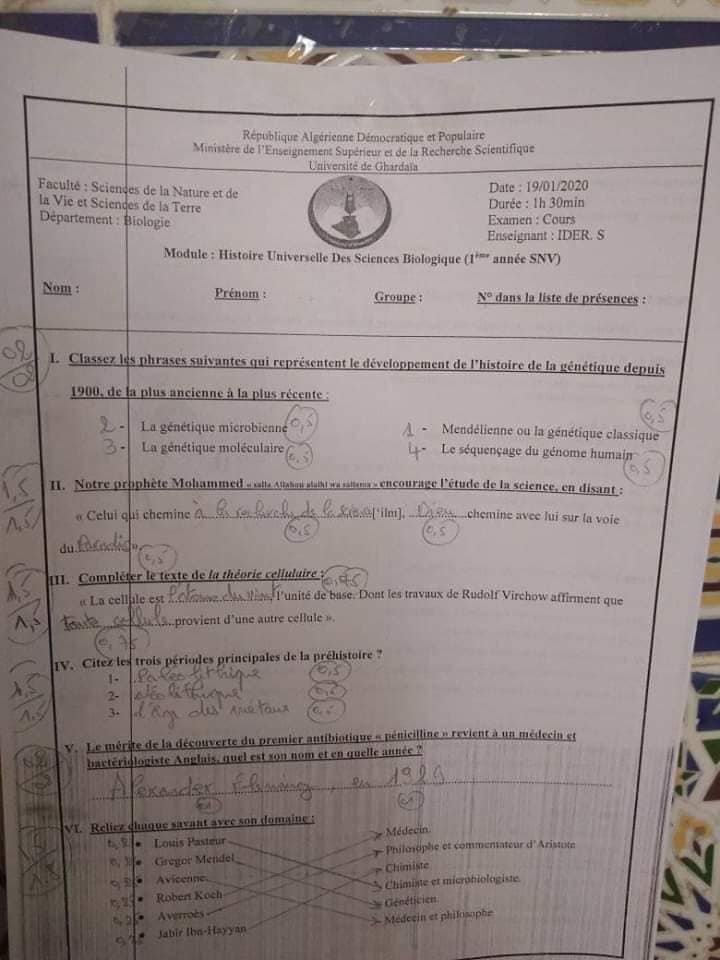 République Algérienne Démocratique et Populaire
Ministère de l'Enseignement Supérieur et de la Recherche Scientifique
Université de Ghardaïa
Faculté : Sciences de la Nature et de
la Vie et Sciences de la Terre
Département : Biologie
Date : 19/01/2020
Durée : 1h 30min
Examen : Cours
Enseignant : IDER. S
Module : Histoire Universelle Des Sciences Biologique (1ème année SNV)
Nom : Prénom : Groupe : N° dans la liste de présences :
02
02
I. Classez les phrases suivantes qui représentent le développement de l'histoire de la génétique depuis
1900, de la plus ancienne à la plus récente :
2- La génétique microbienne 0,5 1- Mendélienne ou la génétique classique 0,5
3- La génétique moléculaire 0,5 4- Le séquençage du génome humain 0,5
1,5
1,5
II. Notre prophète Mohammed « salla Allahou alaihi wa sallama » encourage l'étude de la science, en disant :
« Celui qui chemine à la recherche de la science [‘ilm], Dieu chemine avec lui sur la voie
0,5 0,5
du Paradis ». 0,5
1,5
1,5
III. Compléter le texte de la théorie cellulaire : 0,75
« La cellule est l'atome du vivant l'unité de base. Dont les travaux de Rudolf Virchow affirment que
toute cellule provient d'une autre cellule ».
0,75
1,5
1,5
IV. Citez les trois périodes principales de la préhistoire ?
1- Paléolithique 0,5
2- néolithique 0,5
3- l'âge des métaux 0,5
V. Le mérite de la découverte du premier antibiotique « pénicilline » revient à un médecin et
bactériologiste Anglais, quel est son nom et en quelle année ?
Alexander Fleming, en 1929
01 01
VI. Reliez chaque savant avec son domaine :
Louis Pasteur
Gregor Mendel
Avicenne
Robert Koch
Averroès
Jabir Ibn-Hayyan
Médecin.
Philosophe et commentateur d'Aristote
Chimiste
Chimiste et microbiologiste.
Généticien.
Médecin et philosophe